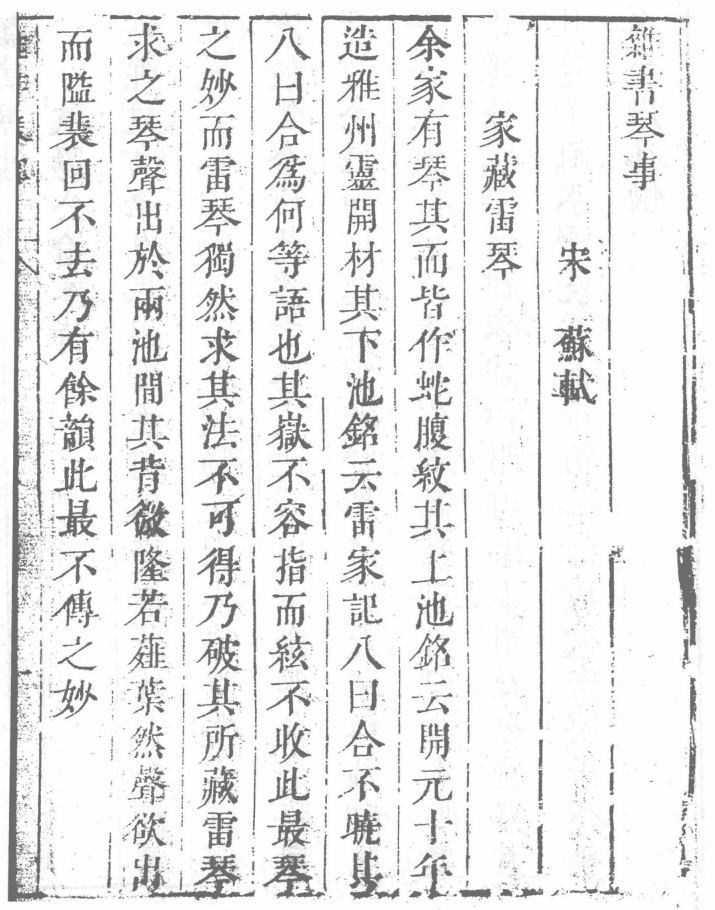 雜書琴事
宋 蘇軾
家藏雷琴
余家有琴其面皆作蛇腹紋其上池銘云開元十年
造雅州靈開材其下池銘云雷家記八日合不曉其
八日合爲何等語也其嶽不容指而絃不收此最琴
之妙而雷琴獨然求其法不可得乃破其所藏雷琴
求之琴聲出於兩池間其背微隆若薤葉然聲欲出
而隘裴回不去乃有餘韻此最不傳之妙